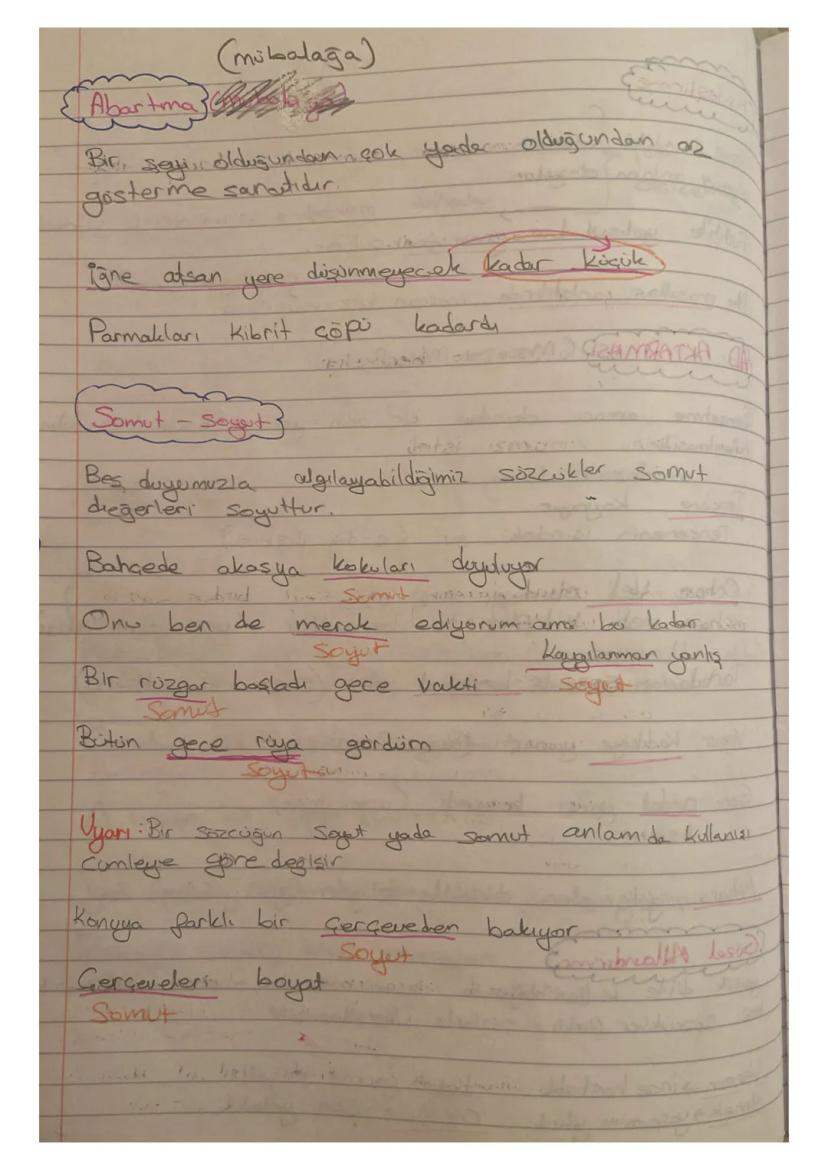 (mübalağa)
Abartma
Bir şeyi olduğundan çok yada olduğundan az
gösterme sanatıdır.
iğne atsan yere düşünmeyecek kadar küçük
Parmakları kibrit çöpü kadardı
Somut - Soyut
Beş duyumuzla algılayabildiğimiz sözcükler somut
dieğerleri soyuttur.
Bahçede akasya kokuları duyuluyor
Somut
Onu ben de merak ediyorum ama bu kadar
Soyut
kaygılanman yanlış
Soyut
Bir rüzgar başladı gece vakti
Somut
Bütün gece rüya gördüm
Soyut
Uyarı: Bir sözcüğün soyut yada somut anlamda kullanışı
cümleye göre değişir
Konuya farklı bir çerçeveden bakıyor
Soyut
Çerçeveleri boyat
Somut